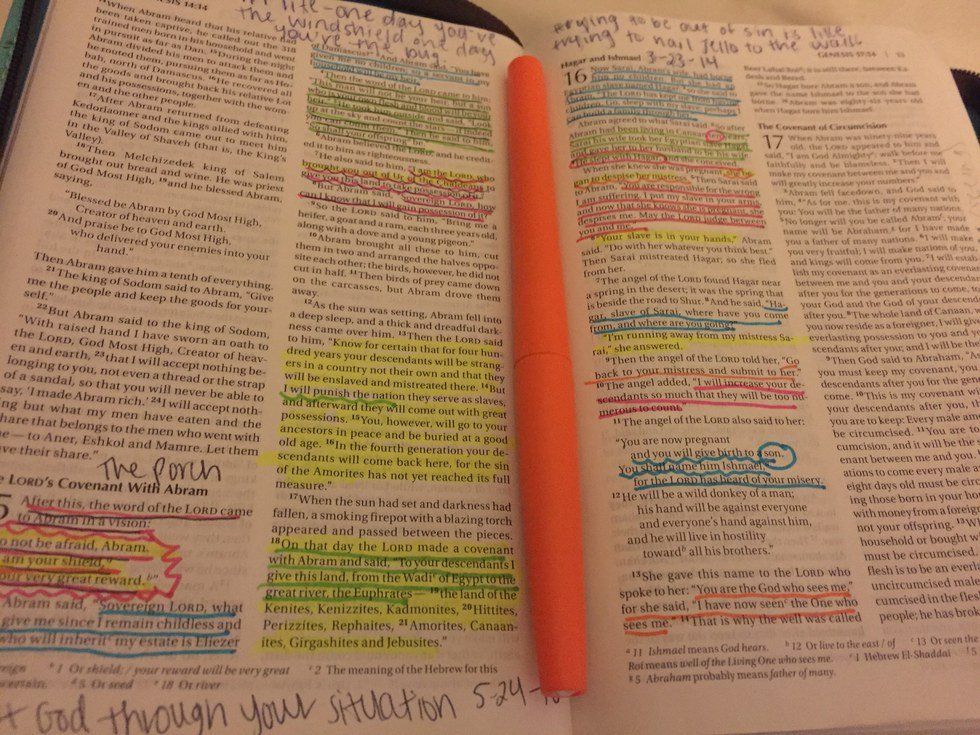 life-one day you've
the windshield one day
you're the bug
GENESIS 14:14
When Abram heard that his relative had
been taken captive, he called out the 318
trained men born in his household and went
in pursuit as far as Dan. 15 During the night
Abram divided his men to attack them and
he routed them, pursuing them as far as
north of Damascus. 16 He recovered all
the goods and brought back his relative Lot
and his possessions, together with the women
and the other people.
17 After Abram returned from defeating
Kedorlaomer and the kings allied with him,
the king of Sodom came out to meet him
in the Valley of Shaveh (that is, the King's
Valley).
18 Then Melchizedek king of Salem
brought out bread and wine. He was priest
of God Most High, 19 and he blessed Abram,
saying,
"Blessed be Abram by God Most High,
Creator of heaven and earth.
20 And praise be to God Most High,
who delivered your enemies into your
hand."
Then Abram gave him a tenth of everything.
21 The king of Sodom said to Abram, "Give
me the people and keep the goods for your-
self."
22 But Abram said to the king of Sodom,
"With raised hand I have sworn an oath to
the LORD, God Most High, Creator of heav-
en and earth, 23 that I will accept nothing be-
longing to you, not even a thread or the strap
of a sandal, so that you will never be able to
say, 'I made Abram rich.' 24 I will accept noth-
ing but what my men have eaten and the
share that belongs to the men who went with
me — to Aner, Eshkol and Mamre. Let them
have their share."
The Porch
LORD'S Covenant With Abram
After this, the word of the LORD came
to Abram in a vision:
not be afraid, Abram.
am your shield,
your very great reward. b"
Abram said, "Sovereign LORD, what
give me since I remain childless and
who will inherit my estate is Eliezer
b 1 Or shield; / your reward will be very great
5 Or seed 18 Or river
of Damascus?" 3 And Abram said, "You have
given me no children; so a servant in my
household will be my heir."
4 Then the word of the LORD came to him:
"This man will not be your heir, but a son
who is your own flesh and blood will be your
heir." 5 He took him outside and said, "Look
up at the sky and count the stars — if indeed
you can count them." Then he said to him,
"So shall your offspring be."
6 Abram believed the LORD, and he credit-
ed it to him as righteousness.
7 He also said to him, "I am the LORD, who
brought you out of Ur of the Chaldeans to
give you this land to take possession of it."
8 But Abram said, "Sovereign LORD, how
can I know that I will gain possession of it?"
9 So the LORD said to him, "Bring me a
heifer, a goat and a ram, each three years old,
along with a dove and a young pigeon."
10 Abram brought all these to him, cut
them in two and arranged the halves oppo-
site each other; the birds, however, he did not
cut in half. 11 Then birds of prey came down
on the carcasses, but Abram drove them
away.
12 As the sun was setting, Abram fell into
a deep sleep, and a thick and dreadful dark-
ness came over him. 13 Then the LORD said
to him, "Know for certain that for four hun-
dred years your descendants will be strang-
ers in a country not their own and that they
will be enslaved and mistreated there. 14 But
I will punish the nation they serve as slaves,
and afterward they will come out with great
possessions. 15 You, however, will go to your
ancestors in peace and be buried at a good
old age. 16 In the fourth generation your de-
scendants will come back here, for the sin
of the Amorites has not yet reached its full
measure."
17 When the sun had set and darkness had
fallen, a smoking firepot with a blazing torch
appeared and passed between the pieces.
18 On that day the LORD made a covenant
with Abram and said, "To your descendants I
give this land, from the Wadi e of Egypt to the
great river, the Euphrates — 19 the land of the
Kenites, Kenizzites, Kadmonites, 20 Hittites,
Perizzites, Rephaites, 21 Amorites, Canaan-
ites, Girgashites and Jebusites."
c 2 The meaning of the Hebrew for this
God through your situation 5-24-
trying to be out of sin is like
trying to nail Jello to the wall
3-23-14
GENESIS 17:14
Hagar and Ishmael
16 Now Sarai, Abram's wife, had borne
him no children. But she had an
Egyptian slave named Hagar; 2 so she said
to Abram, "The LORD has kept me from having
children. Go, sleep with my slave; perhaps I
can build a family through her."
Abram agreed to what Sarai said. 3 So after
Abram had been living in Canaan ten years,
Sarai his wife took her Egyptian slave Hagar
and gave her to her husband to be his wife.
4 He slept with Hagar, and she conceived.
When she knew she was pregnant, she be-
gan to despise her mistress. 5 Then Sarai said
to Abram, "You are responsible for the wrong
I am suffering. I put my slave in your arms,
and now that she knows she is pregnant, she
despises me. May the LORD judge between
you and me."
6 "Your slave is in your hands," Abram
said. "Do with her whatever you think best."
Then Sarai mistreated Hagar; so she fled
from her.
7 The angel of the LORD found Hagar near
a spring in the desert; it was the spring that
is beside the road to Shur. 8 And he said, "Ha-
gar, slave of Sarai, where have you come
from, and where are you going?"
"I'm running away from my mistress Sa-
rai," she answered.
9 Then the angel of the LORD told her, "Go
back to your mistress and submit to her."
10 The angel added, "I will increase your de-
scendants so much that they will be too nu-
merous to count."
11 The angel of the LORD also said to her:
"You are now pregnant
and you will give birth to a son.
You shall name him Ishmael, a
for the LORD has heard of your misery.
12 He will be a wild donkey of a man;
his hand will be against everyone
and everyone's hand against him,
and he will live in hostility
toward b all his brothers."
13 She gave this name to the LORD who
spoke to her: "You are the God who sees me,"
for she said, "I have now seen c the One who
sees me." 14 That is why the well was called
Beer Lahai Roi d; it is still there, between Ka-
desh and Bered.
15 So Hagar bore Abram a son, and Abram
gave the name Ishmael to the son she had
borne. 16 Abram was eighty-six years old
when Hagar bore him Ishmael.
The Covenant of Circumcision
17 When Abram was ninety-nine years
old, the LORD appeared to him and
said, "I am God Almighty e; walk before me
faithfully and be blameless. 2 Then I will
make my covenant between me and you and
will greatly increase your numbers."
3 Abram fell facedown, and God said to
him, 4 "As for me, this is my covenant with
you: You will be the father of many nations.
5 No longer will you be called Abram f; your
name will be Abraham, g for I have made
you a father of many nations. 6 I will make
you very fruitful; I will make nations of you,
and kings will come from you. 7 I will estab-
lish my covenant as an everlasting covenant
between me and you and your descendants
after you for the generations to come, to
your God and the God of your descendants
after you. 8 The whole land of Canaan, w
you now reside as a foreigner, I will give
everlasting possession to you and your
scendants after you; and I will be th
9 Then God said to Abraham, "A
you must keep my covenant, you
descendants after you for the gen
come. 10 This is my covenant w
your descendants after you, th
you are to keep: Every male am
be circumcised. 11 You are to
cumcision, and it will be the
enant between me and you.
ations to come every male a
eight days old must be circ
ing those born in your ho
with money from a foreig
not your offspring. 13
household or bought w
must be circumcised.
flesh is to be an everla
uncircumcised male
cumcised in the flesh
people; he has brok
a 11 Ishmael means God hears. b 12 Or live to the east / of c 13 Or seen the
Roi means well of the Living One who sees me. e 1 Hebrew El-Shaddai f 5
g 5 Abraham probably means father of many.